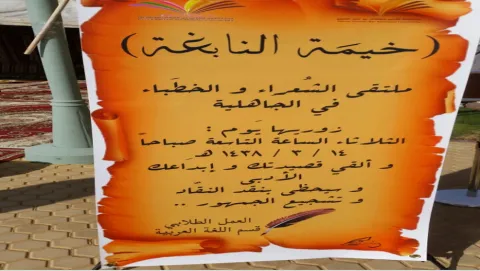 (خيمة النابغة)
ملتقى الشعراء و الخطباء
في الجاهلية
زوريها يوم :
الثلاثاء الساعة التاسعة صباحاً
١٤ / ٣ / ١٤٣٨ هـ
و ألقي قصيدتك و إبداعك
الأدبي
و سيحظى بنقد النقاد
و تشجيع الجمهور ..
العمل الطلابي
قسم اللغة العربية